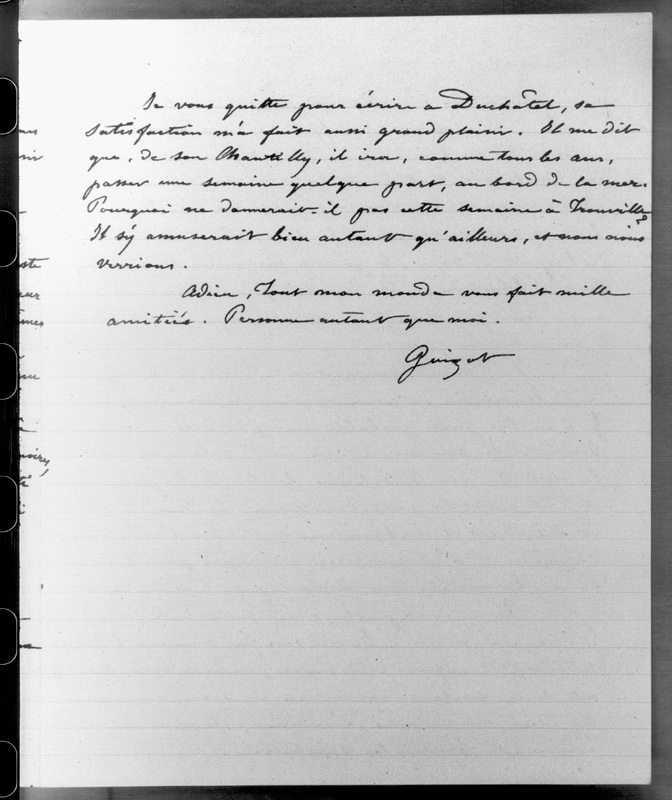 Je vous quitte pour écrire a Duchâtel, sa
satisfaction m'a fait aussi grand plaisir. Il me dit
que, de son Chantilly, il ira, comme tous les ans,
passer une semaine quelque part, au bord de la mer.
Pourquoi ne donnerait-il pas cette semaine à Trouville?
Il s'y amuserait bien autant qu'ailleurs, et nous nous
verrions.
Adieu, Tout mon monde vous fait mille
amitiés. Personne autant que moi.
Guizot